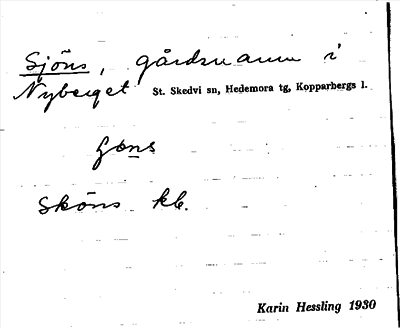 Sjöns, gårdsnamn i
Nyberget St. Skedvi sn, Hedemora tg, Kopparbergs l.
sköns kb.
Karin Hessling 1930